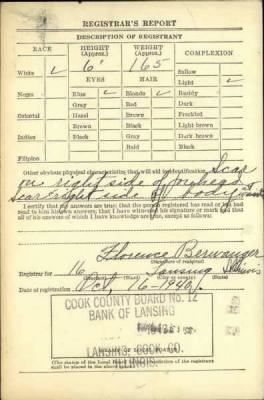 REGISTRAR'S REPORT
DESCRIPTION OF REGISTRANT
RACE HEIGHT (Approx.) WEIGHT (Approx.) COMPLEXION
White ✓ 6' 165 Sallow
EYES HAIR Light ✓
Negro Blue ✓ Blonde ✓ Ruddy
Gray Red Dark
Oriental Hazel Brown Freckled
Brown Black Light brown
Indian Black Gray Dark brown
Bald Black
Filipino
Other obvious physical characteristics that will aid in identification Scar
on right side of forehead
Scar right side of body at waist
I certify that my answers are true; that the person registered has read or has had
read to him his own answers; that I have witnessed his signature or mark and that
all of his answers of which I have knowledge are true, except as follows:
Florence Berwanger
(Signature of registrar)
Registrar for 16 Lansing Illinois
(Precinct) (Ward) (City or county) (State)
Date of registration Oct, 16-1940
COOK COUNTY BOARD No. 12
BANK OF LANSING
LANSING, COOK CO.
ILLINOIS
(STAMP OF LOCAL BOARD)
(The stamp of the Local Board having jurisdiction of the registrant
shall be placed in the above space)